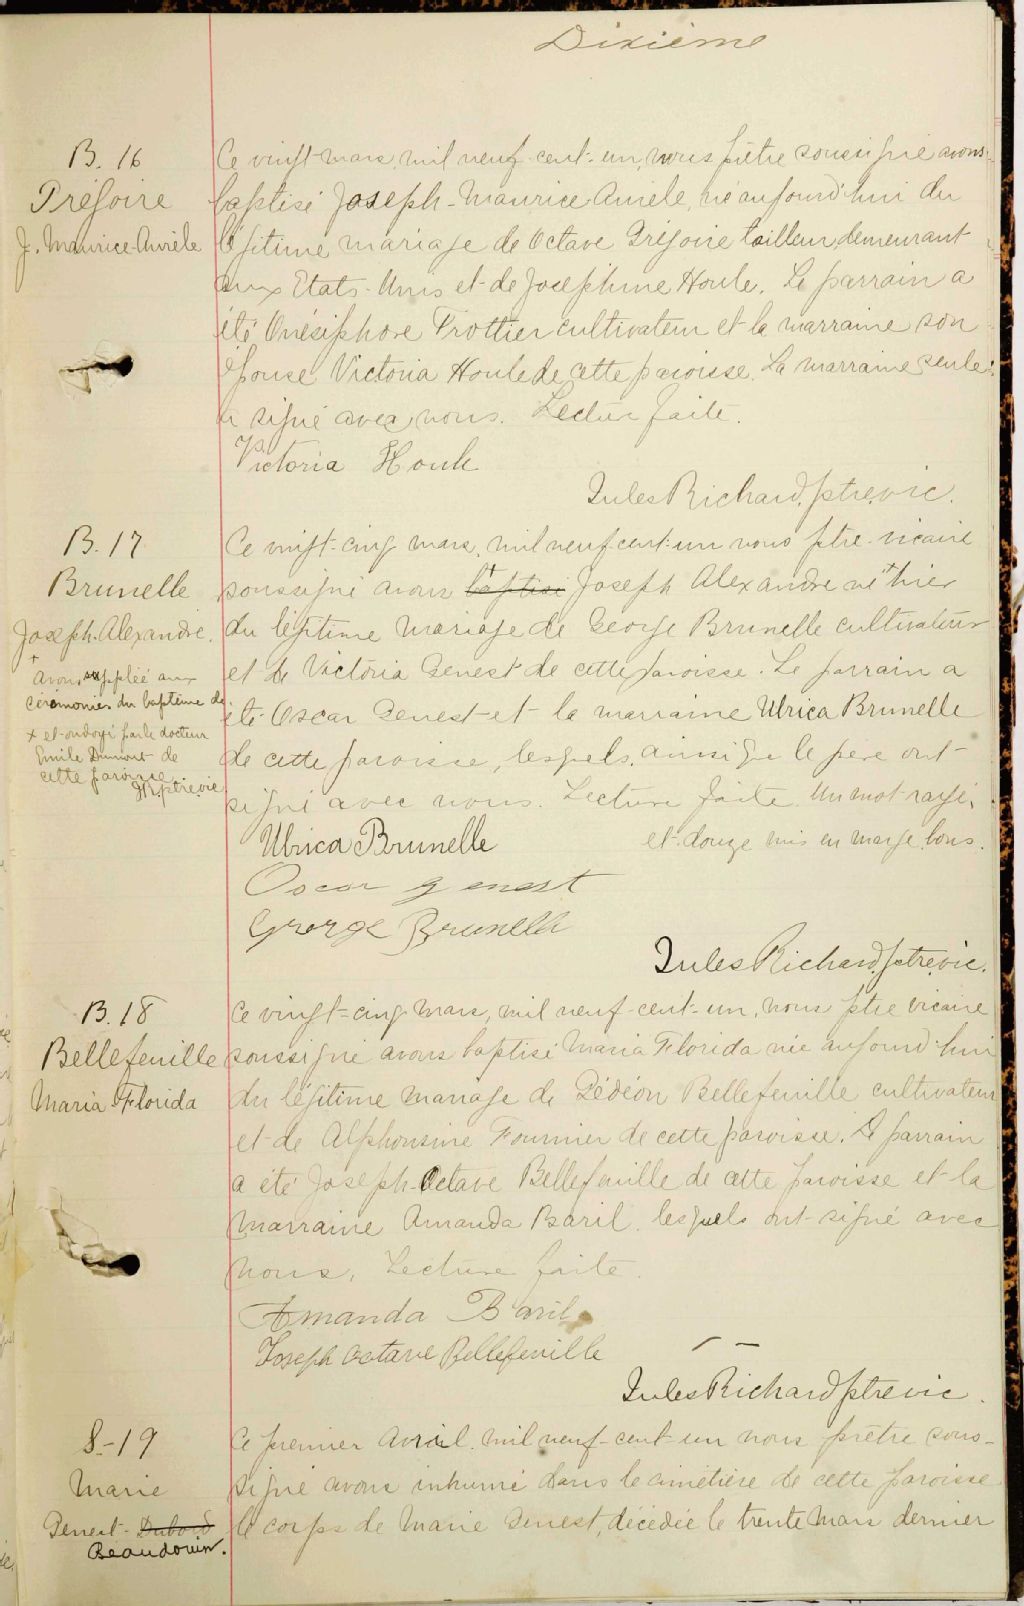 Dixième
B. 16
Grégoire
J. Maurice-Aurèle
Ce vingt mars mil neuf-cent-un, nous prêtre soussigné avons
baptisé Joseph-Maurice-Aurèle, né aujourd'hui du
légitime mariage de Octave Grégoire tailleur, demeurant
aux Etats-Unis et de Josephine Houle. Le parrain a
été Onésiphore Trottier cultivateur et la marraine son
épouse Victoria Houle de cette paroisse. La marraine seule
a signé avec nous. Lecture faite.
Victoria Houle
Jules Richard, ptre.vic.
B. 17
Brunelle
Joseph-Alexandre.
+ Avons suppléé aux
cérémonies du baptême de
x et ondoyé par le docteur
Emile Dumont de
cette paroisse
JR, ptre.vic
Ce vingt-cinq mars, mil neuf cent-un nous ptre-vicaire
soussigné avons + baptisé Joseph Alexandre né + hier
du légitime mariage de George Brunelle cultivateur
et de Victoria Genest de cette paroisse. Le parrain a
été Oscar Genest et la marraine Ulrica Brunelle
de cette paroisse, lesquels, ainsi que le père ont
signé avec nous. Lecture faite. Un mot rayé,
et douze mis en marge bons.
Ulrica Brunelle
Oscar genest
George Brunelle
Jules Richard, ptre.vic.
B. 18
Bellefeuille
Maria Florida
Ce vingt-cinq mars, mil neuf-cent-un, nous ptre vicaire
soussigné avons baptisé Maria Florida née aujourd'hui
du légitime mariage de Gédéon Bellefeuille cultivateur
et de Alphonsine Fournier de cette paroisse. Le parrain
a été Joseph-Octave Bellefeuille de cette paroisse et la
marraine Amanda Baril, lesquels ont signé avec
nous. Lecture faite.
Amanda Baril
Joseph Octave Bellefeuille
Jules Richard ptre vic.
S-19
Marie
Genest-Dubord
Beaudouin.
Ce premier Avril mil neuf-cent un nous prêtre sous-
signé avons inhumé dans le cimetière de cette paroisse
le corps de Marie Genest, décédée le trente mars dernier